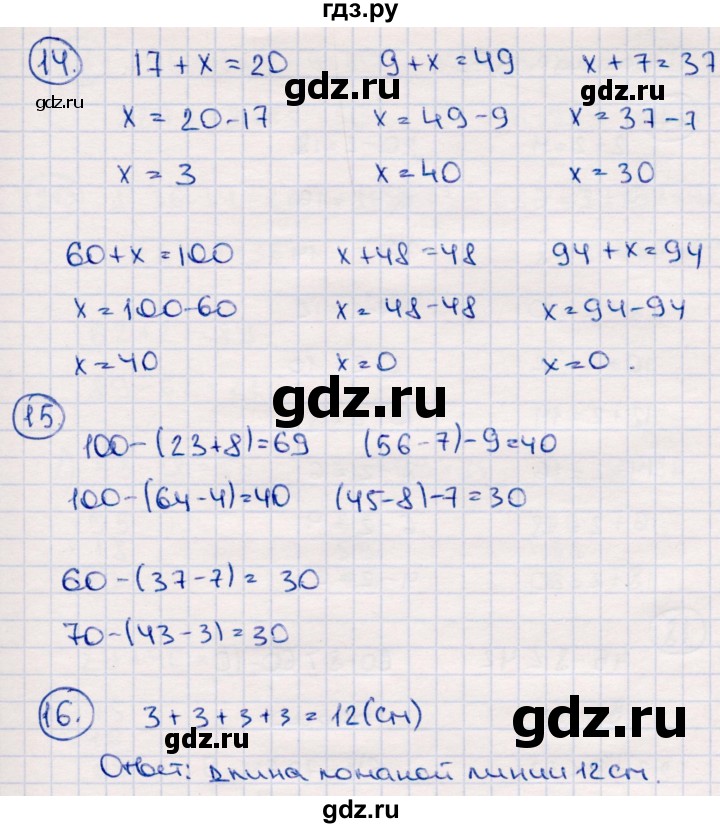 гдз.ру
14. 17 + x = 20 9 + x = 49 x + 7 = 37
gdz.ru gdz.ru gdz.ru
x = 20-17 x = 49-9 x = 37-7
x = 3 x = 40 x = 30
60 + x = 100 x + 48 = 48 94 + x = 94
x = 100-60 x = 48-48 x = 94-94
x = 40 x = 0 x = 0 .
gdz.ru
15. 100-(23+8)=69 (56-7)-9=40
100-(64-4)=40 (45-8)-7=30
60-(37-7)= 30
70-(43-3)=30
16. 3 + 3 + 3 + 3 = 12(см)
gdz.ru gdz.ru
Ответ: длина ломаной линии 12 см.
gdz.ru